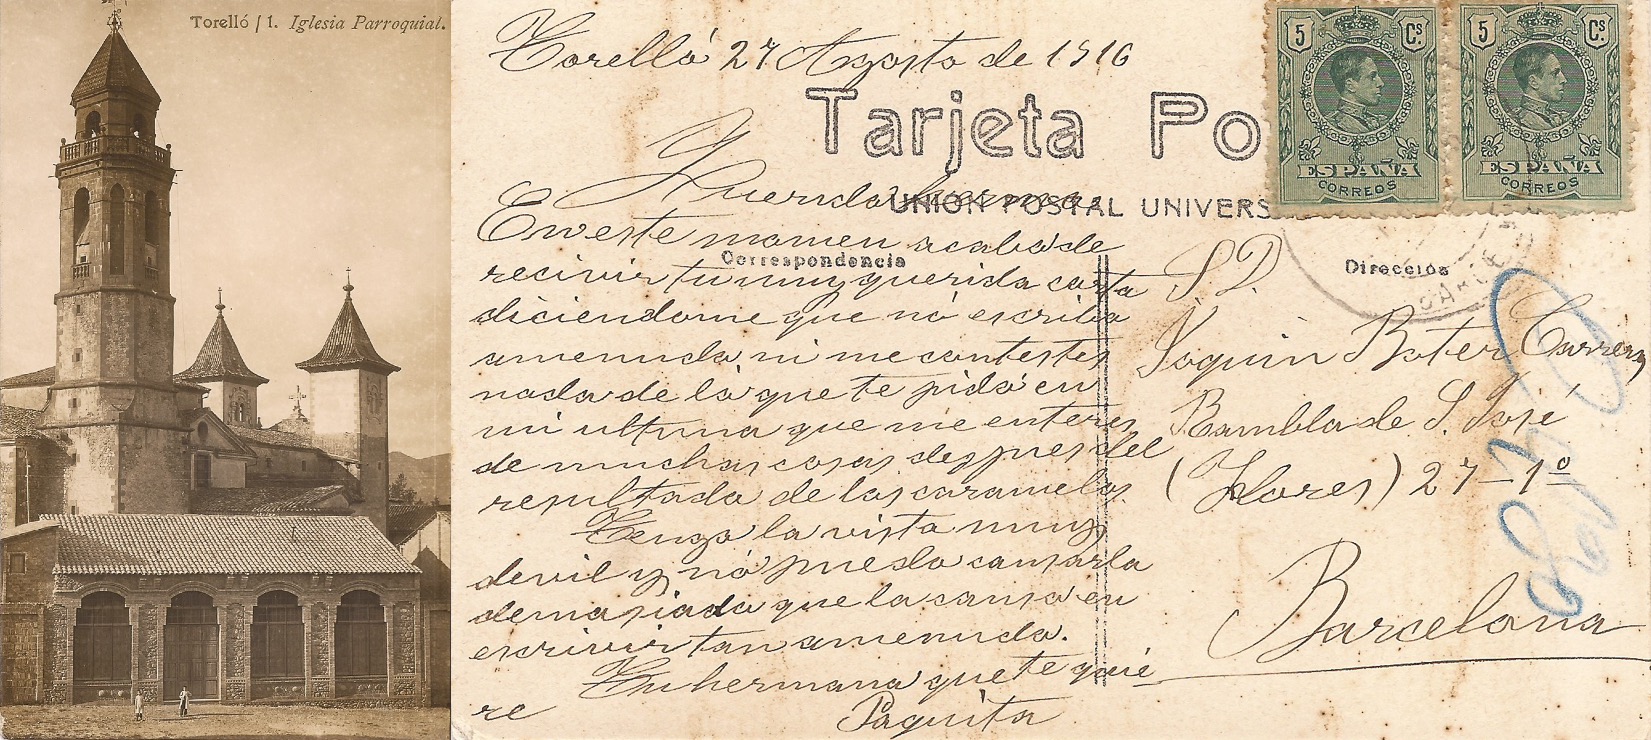 Torelló / 1. Iglesia Parroquial.
Torelló 27 Agosto de 1916
Tarjeta Po
UNIÓN POSTAL UNIVERS
Correspondencia
Dirección
5 Cs.
ESPAÑA
CORREOS
5 Cs.
ESPAÑA
CORREOS
Querida hermana
En este momen acabo de
recivir tu muy querida carta
diciendome que nó escriba
amenuda ni me contestes
nada de lo que te pido en
mi ultima que me enteres
de muchas cosas despues del
resultado de los caramelos.
Tengo la vista muy
devil y nó puedo cansarla
demasiado que la canso en
escrivir tan amenudo.
Tu hermana que te quie
re Paquita
S D.
Joquin Boter Carrera,
Rambla de S. José
(Flores) 27-1º
Barcelona